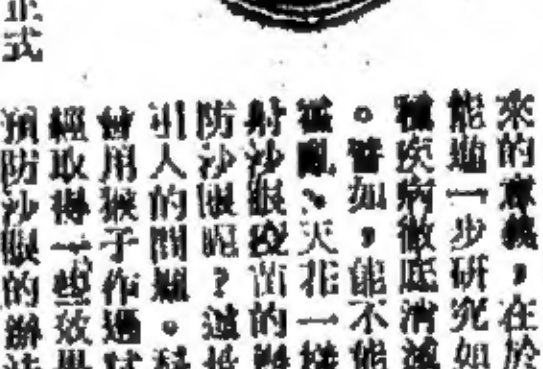 正式
來的意義，在於
能進一步研究如
種疾病徹底消滅
。譬如，能不能
霍亂、天花一樣
射沙眼疫苗的辦
防沙眼呢？這是
引人的問題。科
曾用猴子作過試
經取得一些效果
預防沙眼的辦法